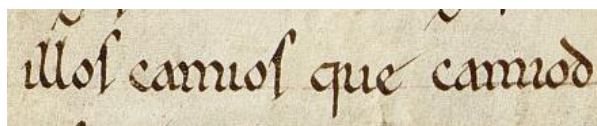 illos camios que camiod